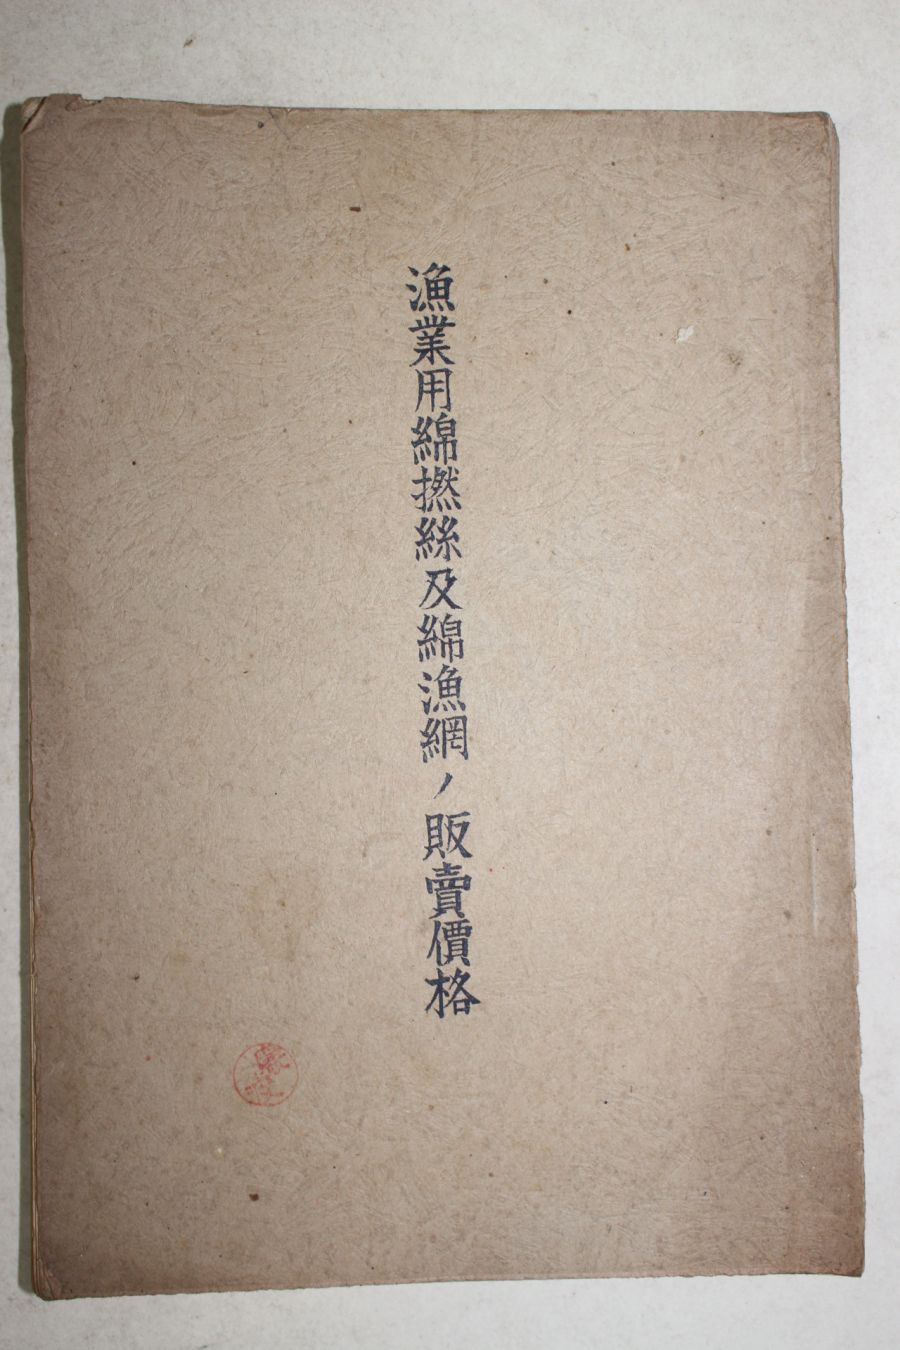 漁業用綿撚絲及綿漁網ノ販賣價格